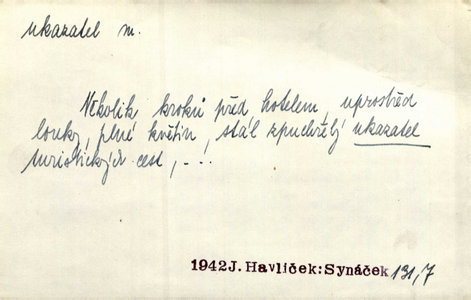 ukazatel m.
Několik kroků před hotelem, uprostřed
louky, plné květin, stál zpuchřelý ukazatel
turistických cest, ...
1942 J. Havlíček: Synáček 131,7